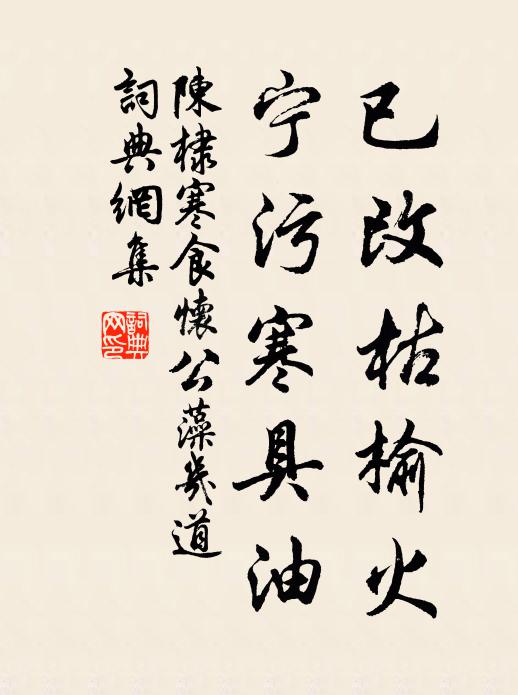 已改枯榆火
宁污寒具油
陳棣寒食懷公藻幾道
詞典網集
詞典網印